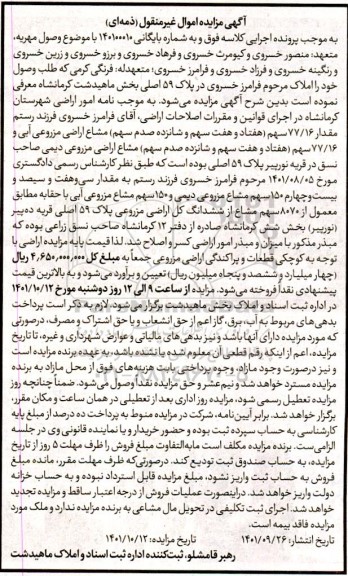 آگهی مزایده اموال غیرمنقول (ذمه‌ای)
به موجب پرونده اجرایی کلاسه فوق و به شماره بایگانی ۱۴۰۱۰۰۰۱۰ با موضوع وصول مهریه،
متعهد: منصور خسروی و کیومرث خسروی و فرهاد خسروی و برزو خسروی و زرین خسروی
و رنگینه خسروی و فرزاد خسروی و فرامرز خسروی؛ متعهدله: فرنگی کرمی که طلب وصول
خود را املاک مرحوم فرامرز خسروی در پلاک ۵۹ اصلی بخش ماهیدشت کرمانشاه معرفی
نموده است بدین شرح آگهی مزایده می‌شود. به موجب نامه امور اراضی شهرستان
کرمانشاه در اجرای قوانین و مقررات اصلاحات ارضی، آقای فرامرز خسروی فرزند رستم
مقدار ۷۷/۱۶ سهم (هفتاد و هفت سهم و شانزده صدم سهم) مشاع اراضی مزروعی آبی و
۷۷/۱۶ سهم (هفتاد و هفت سهم و شانزده صدم سهم) مشاع اراضی مزروعی دیمی صاحب
نسق در قریه نورپیر پلاک ۵۹ اصلی بوده است که طبق نظر کارشناس رسمی دادگستری
مورخ ۱۴۰۱/۰۸/۰۵ مرحوم فرامرز خسروی فرزند رستم به مقدار سی‌وهفت و سیصد و
بیست‌وچهارم ۱۵۰ سهم مشاع مزروعی دیمی و ۱۵۰ سهم مشاع مزروعی آبی با حقابه مطابق
معمول از ۸۰۷۰ سهم مشاع از ششدانگ کل اراضی مزروعی پلاک ۵۹ اصلی قریه ده‌پیر
(نورپیر) بخش شش کرمانشاه صادره از دفتر ۱۲ کرمانشاه صاحب نسق زراعی بوده که
مبذر مذکور با میزان و مبذر امور اراضی کسر و اصلاح شد. لذا قیمت پایه مزایده اراضی با
توجه به کوچکی قطعات و پراکندگی اراضی مزروعی جمعاً به مبلغ کل ۴,۶۵۰,۰۰۰,۰۰۰ ریال
(چهار میلیارد و ششصد و پنجاه میلیون ریال) تعیین و برآورد می‌شود و به بالاترین قیمت
پیشنهادی نقداً فروخته می‌شود. مزایده از ساعت ۹ الی ۱۲ روز دوشنبه مورخ ۱۴۰۱/۱۰/۱۲
در اداره ثبت اسناد و املاک بخش ماهیدشت برگزار می‌شود. لازم به ذکر است پرداخت
بدهی‌های مربوط به آب، برق، گاز اعم از حق انشعاب و یا حق اشتراک و مصرف، درصورتی
که مورد مزایده دارای آنها باشد و نیز بدهی‌های مالیاتی و عوارض شهرداری و غیره، تا تاریخ
مزایده، اعم از اینکه رقم قطعی آن معلوم شده یا نشده باشد، به عهده برنده مزایده است
و نیز درصورت وجود مازاد، وجوه پرداختی بابت هزینه‌های فوق از محل مازاد به برنده
مزایده مسترد خواهد شد و نیم‌عشر و حق مزایده نقداً وصول می‌شود. ضمناً چنانچه روز
مزایده تعطیل رسمی شود، مزایده روز اداری بعد از تعطیلی در همان ساعت و مکان مقرر،
برگزار خواهد شد. برابر آیین‌نامه، شرکت در مزایده منوط به پرداخت ده درصد از مبلغ پایه
کارشناسی به حساب سپرده ثبت بوده و حضور خریدار و یا نماینده قانونی وی در جلسه
الزامی‌ست. برنده مزایده مکلف است مابه‌التفاوت مبلغ فروش را ظرف مهلت ۵ روز از تاریخ
مزایده، به حساب صندوق ثبت تودیع کند. درصورتی‌که ظرف مهلت مقرر، مانده مبلغ
فروش به حساب ثبت واریز نشود، مبلغ مزایده قابل استرداد نبوده و به حساب خزانه
دولت واریز خواهد شد. دراینصورت عملیات فروش از درجه اعتبار ساقط و مزایده تجدید
خواهد شد. اجرای ثبت تکلیفی در تحویل مال مشاعی به برنده مزایده ندارد و ملک مورد
مزایده فاقد بیمه است.
تاریخ انتشار: ۱۴۰۱/۰۹/۲۶ تاریخ مزایده: ۱۴۰۱/۱۰/۱۲
رهبر قامشلو، ثبت‌کننده اداره ثبت اسناد و املاک ماهیدشت